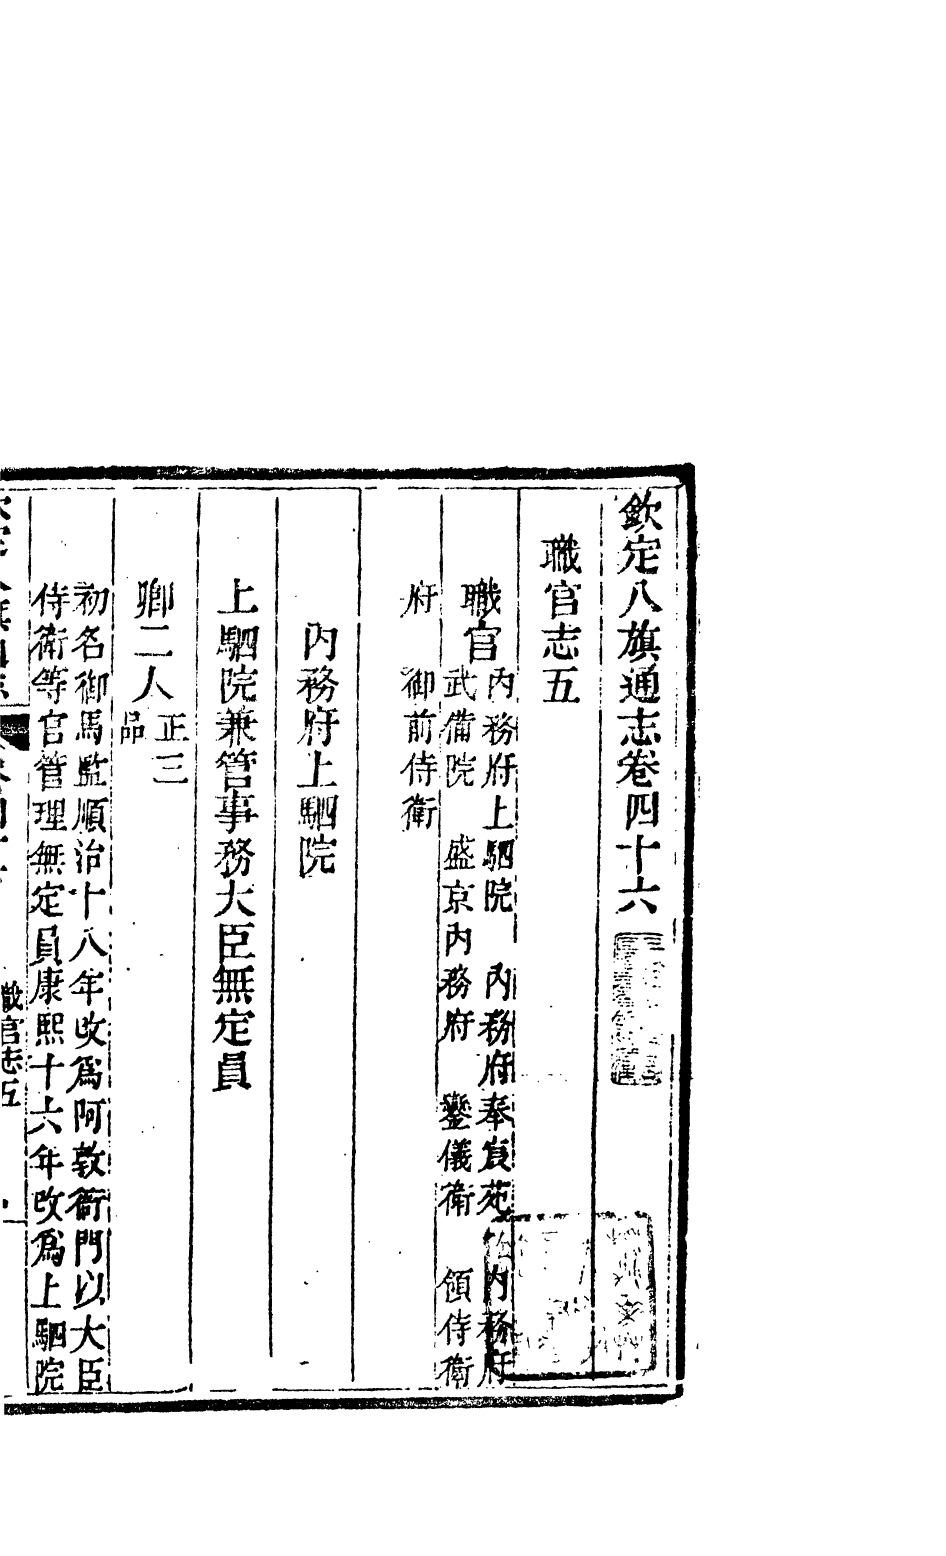 欽定八旗通志卷四十六
職官志五
職官 內務府上駟院 內務府奉宸苑 內務府
武備院 盛京內務府 鑾儀衛 領侍衛
府 御前侍衛
內務府上駟院
上駟院兼管事務大臣無定員
卿二人 正三
品
初名御馬監順治十八年改爲阿敦衙門以大臣
侍衛等官管理無定員康熙十六年改爲上駟院
職官志五